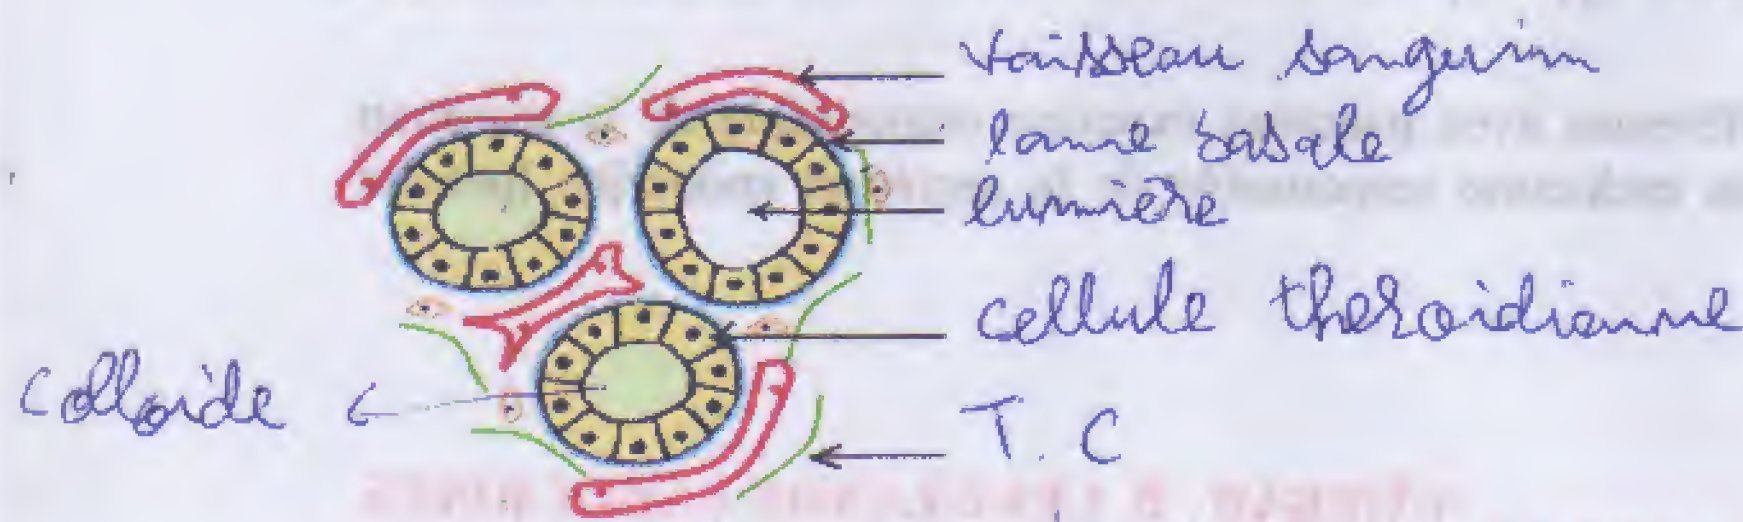 vaisseau sanguin
lame basale
lumière
cellule theroidienne
colloide
T.C